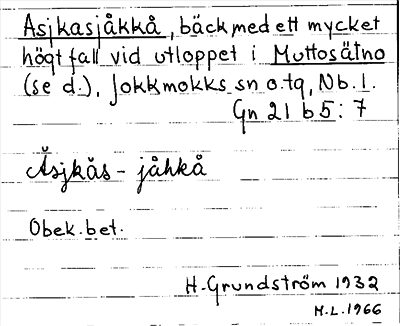 Asjkasjåkkå, bäck med ett mycket
högt fall vid utloppet i Muttosätno
(se d.), Jokkmokks sn o. tg, Nb. l.
Gn 21 b 5: 7
Ăsjkăs- jåhkå
Obek. bet.
H. Grundström 1932
M.L. 1966